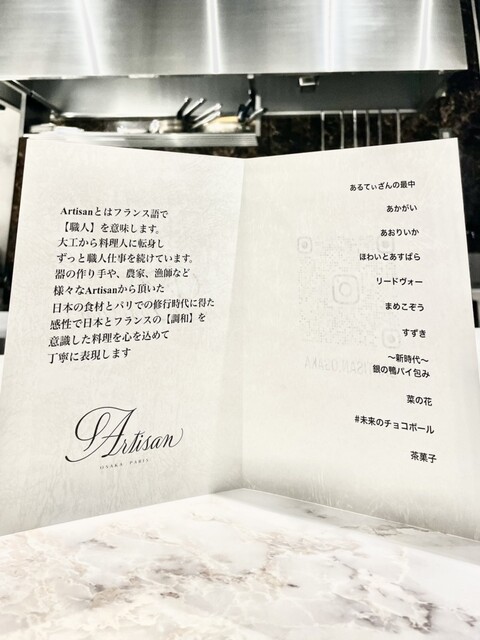 Artisanとはフランス語で
【職人】を意味します。
大工から料理人に転身し
ずっと職人仕事を続けています。
器の作り手や、農家、漁師など
様々なArtisanから頂いた
日本の食材とパリでの修行時代に得た
感性で日本とフランスの【調和】を
意識した料理を心を込めて
丁寧に表現します
Artisan
OSAKA PARIS
あるてぃざんの最中
あかがい
あおりいか
ほわいとあすぱら
リードヴォー
まめこぞう
すずき
～新時代～
銀の鴨パイ包み
菜の花
#未来のチョコボール
茶菓子